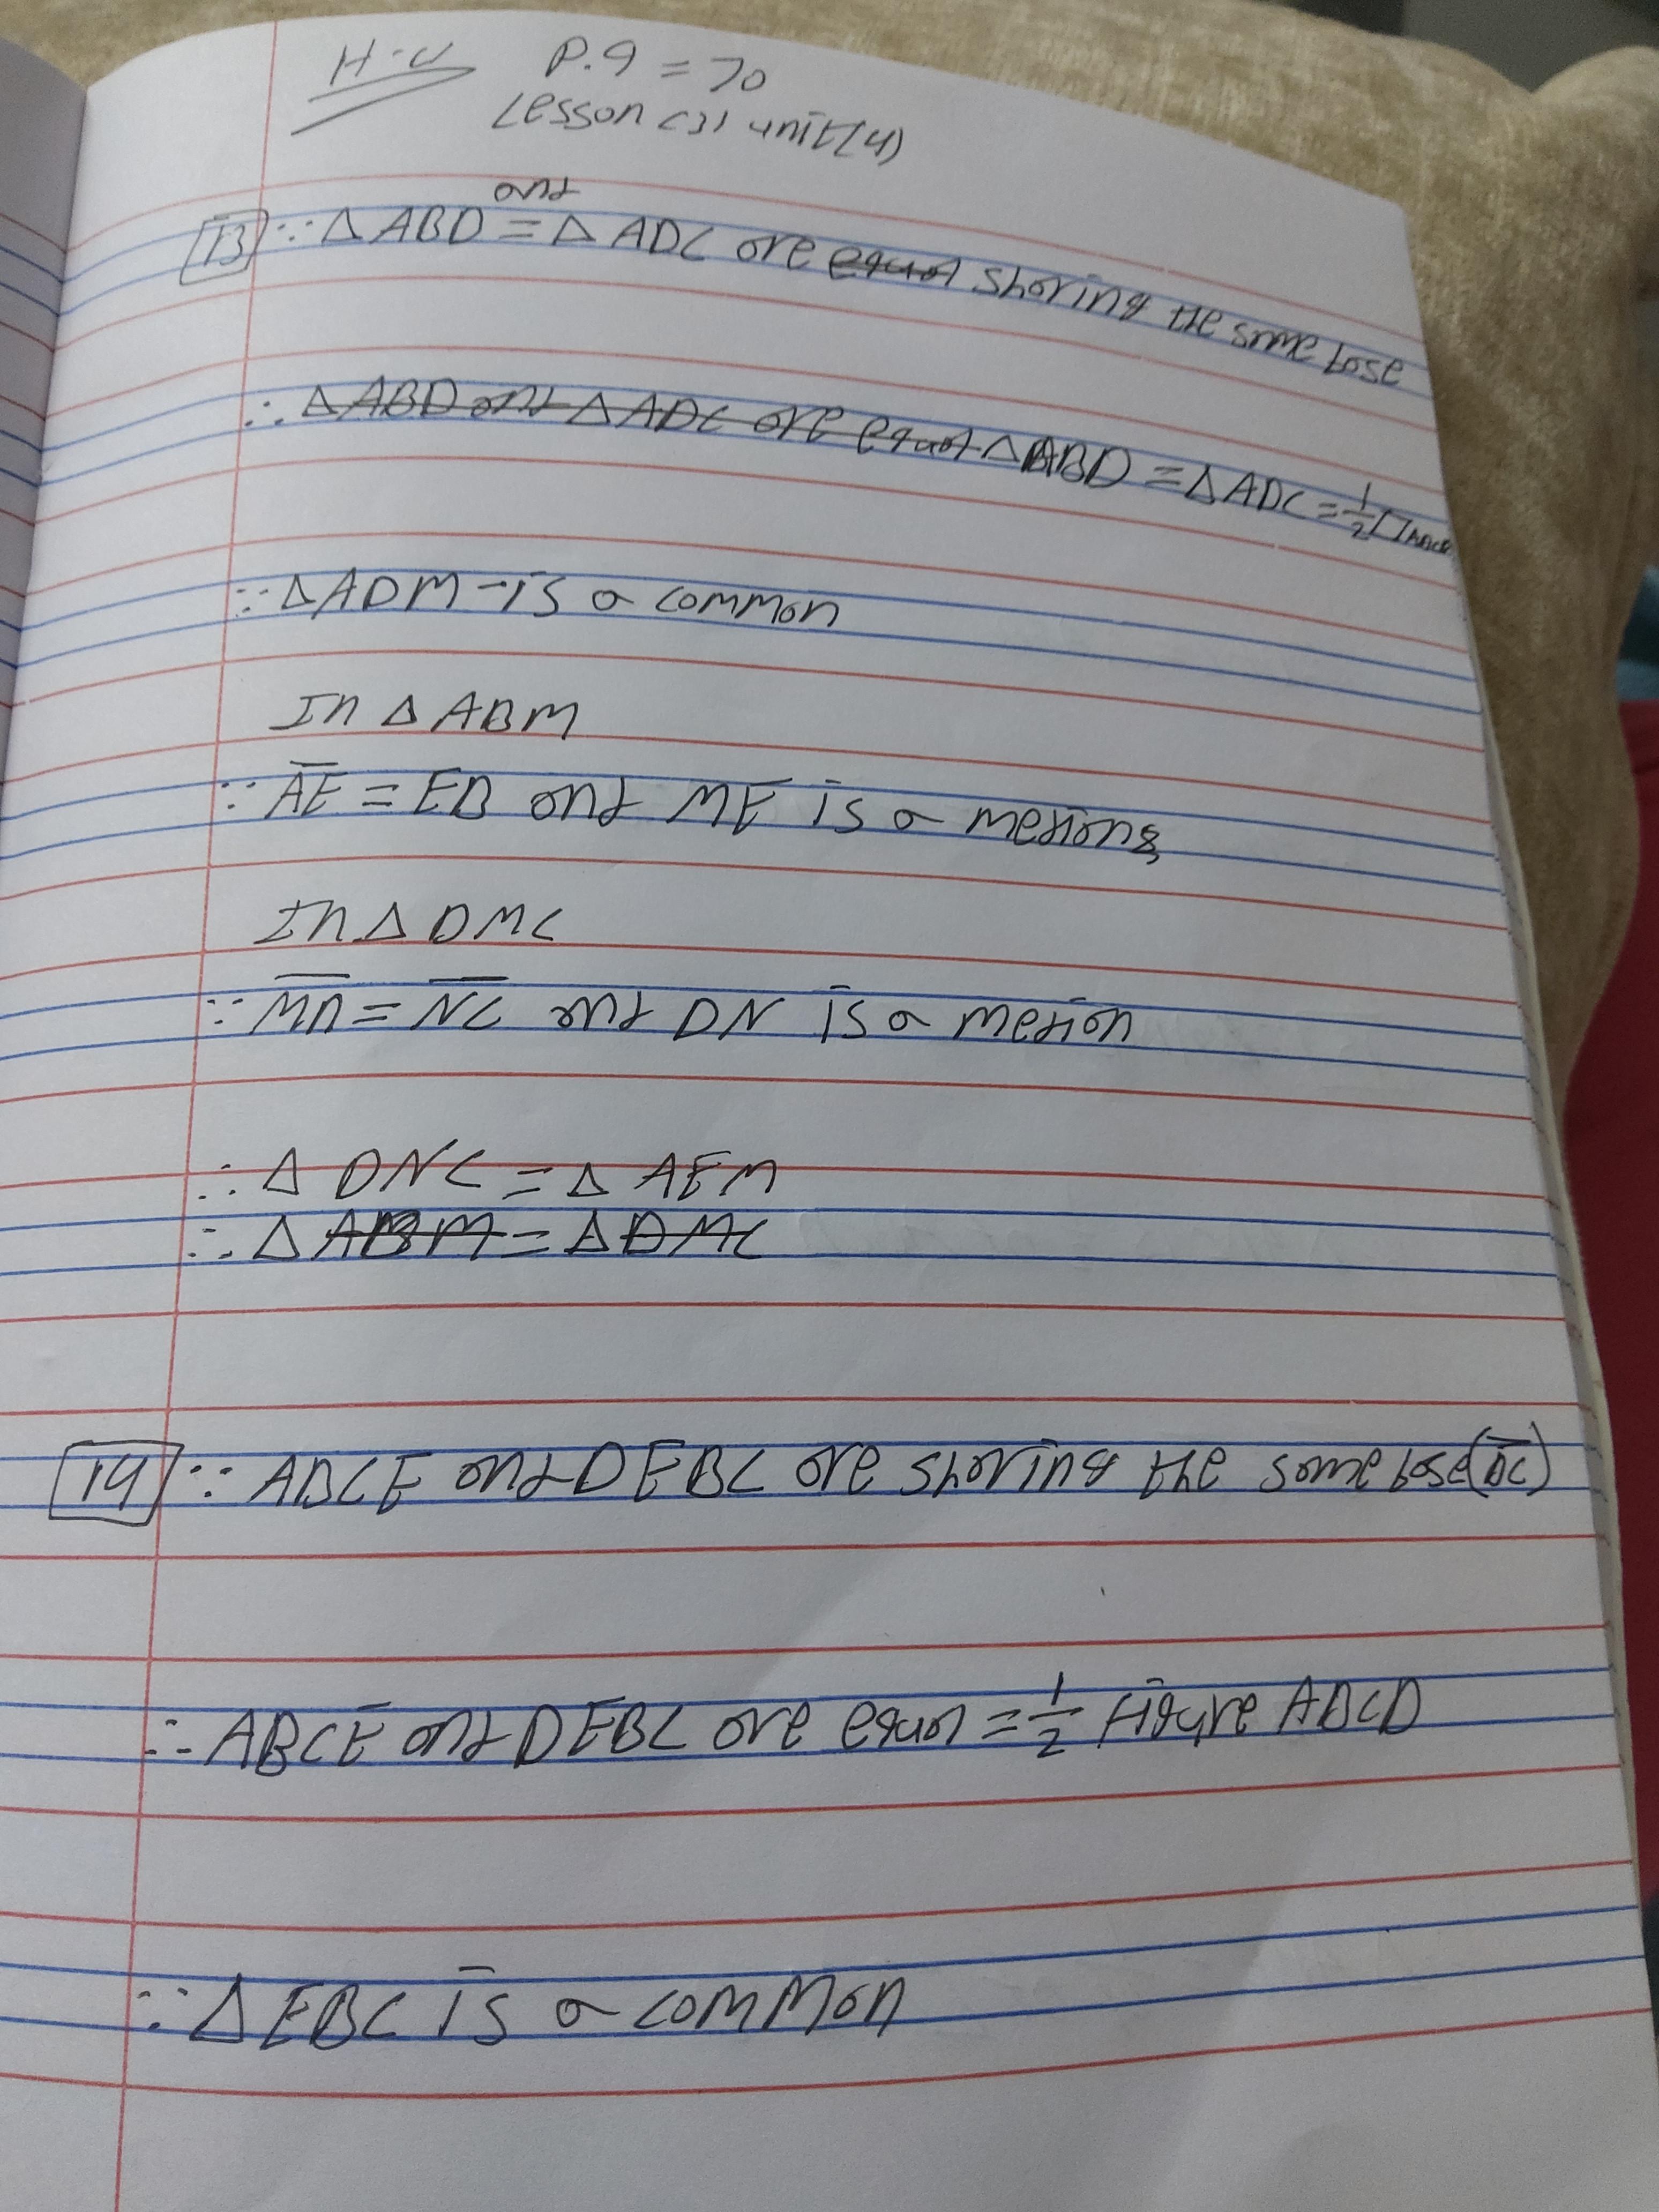 H.W P.9 = 70
Lesson (3) unit(4)
and
13 ∵ △ ABD = △ ADC are equal sharing the same base
∴ △ ABD and △ ADC are equal △ ABD = △ ADC = 1/2 ▱ABCD
∵ △ ADM is a common
In △ ABM
∵ AE = EB and ME is a median
In △ DMC
∵ MN = NC and DN is a median
∴ △ DNC = △ AEM
∴ △ ABM = △ DMC
14 ∵ ABCE and DEBC are sharing the same base(BC)
∴ ABCE and DEBC are equal = 1/2 Figure ABCD
∵ △ EBC is a common